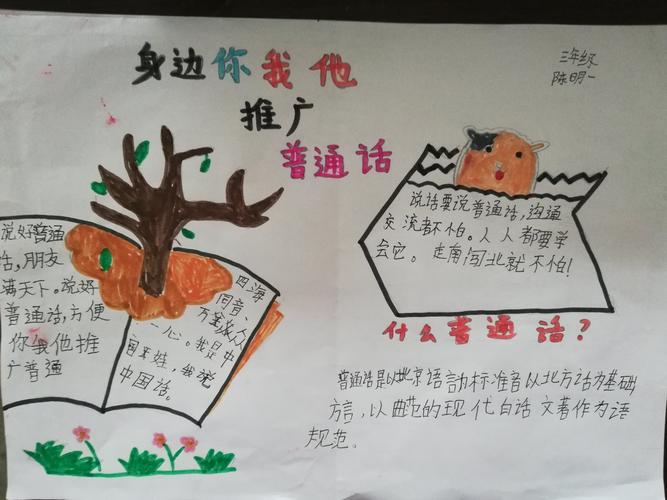 身边你我他
推广
普通话
三年级
陈明一
说话要说普通话，沟通
交流都不怕。人人都要学
会它。走南闯北就不怕！
说好普通
话，朋友
满天下。说好
普通话，方便
你我他推
广普通
四海
同音、
万众人
一心。我是中
国王娃，我说
中国话。
什么普通话？
普通话是以北京语 标准音以北方话为基础
方言，以典范的现代白话文著作为语
规范。